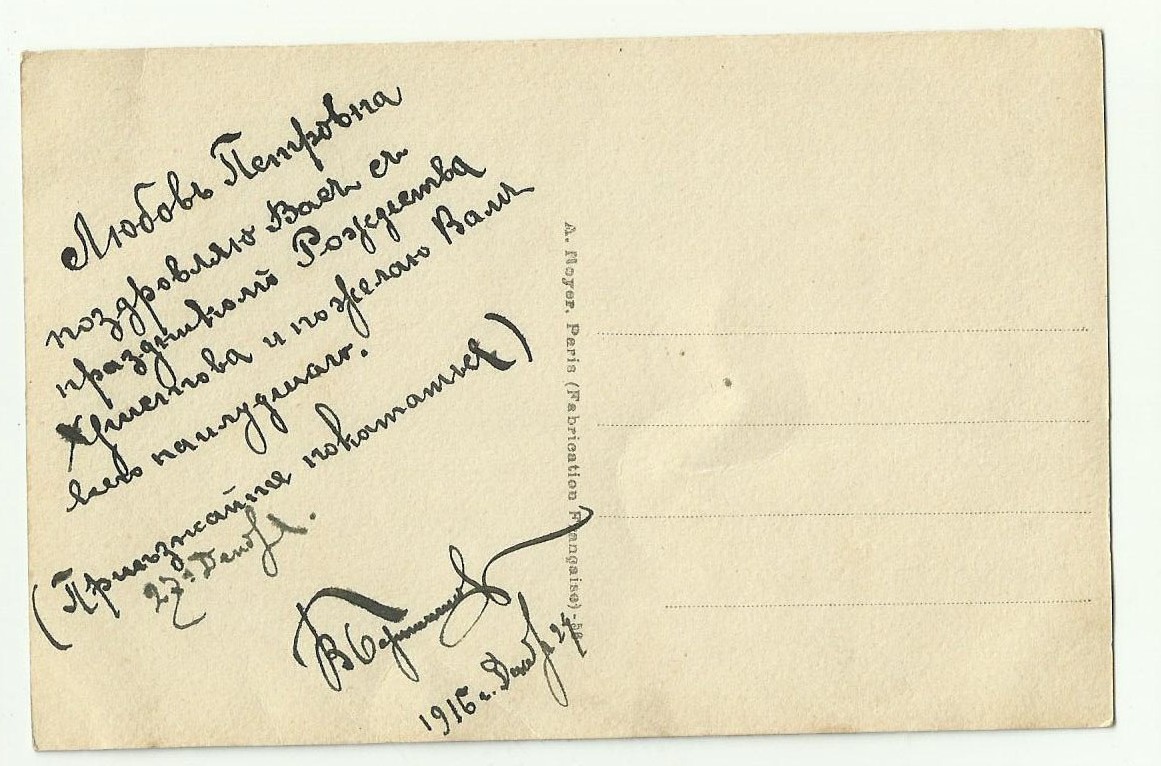 Любовь Петровна
поздровляю Васъ съ
праздникомъ Рождества
Христова и пожелаю Вамъ
всего наилудшаго.
(Приѣзжайте покататься)
27го Декабя.
1916 г. Декабя 27
A. Noyer. Paris (Fabrication Française)-56